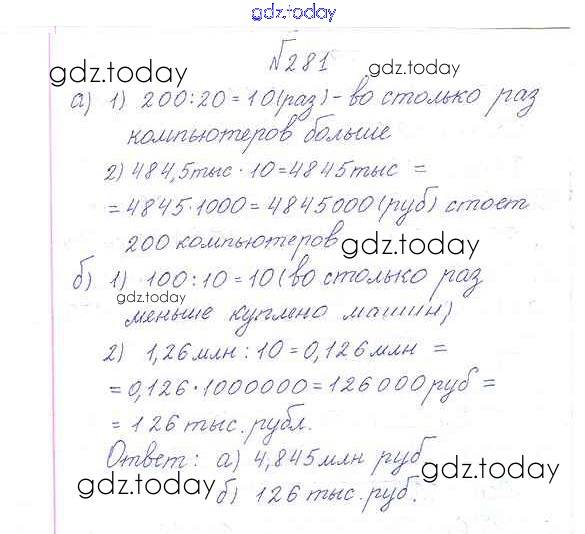 gdz.today
№281
gdz.today gdz.today
а) 1) 200:20=10(раз)-во столько раз
компьютеров больше
2) 484,5тыс·10=4845тыс =
=4845·1000=4845000(руб) стоет
200 компьютеров gdz.today
б) 1) 100:10=10(во столько раз
gdz.today
меньше куплено машин)
2) 1,26млн:10=0,126млн =
=0,126·1000000=126000руб =
=126тыс.рубл.
Ответ: а) 4,845млн руб
gdz.today gdz.today
б) 126тыс.руб.